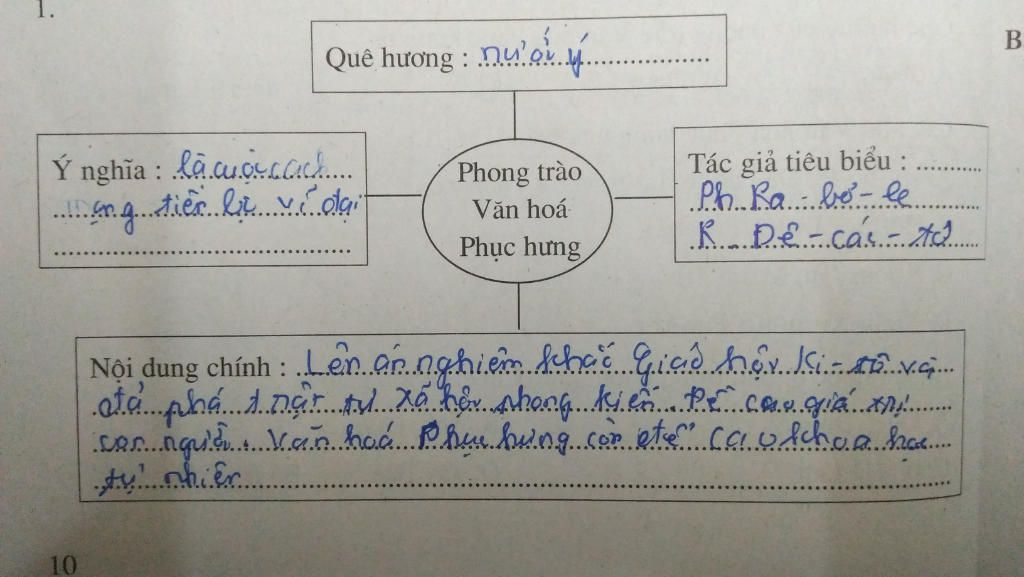 1.
Quê hương : nước ý
B
Ý nghĩa : là cuộc cách
mạng tiến bộ vĩ đại
Phong trào
Văn hoá
Phục hưng
Tác giả tiêu biểu : ............
Ph Ra - bơ - le
R. Đê - các - tơ
Nội dung chính : Lên án nghiêm khắc Giáo hội Ki - tô và
đả phá trật tự xã hội phong kiến. Đề cao giá trị
con người. Văn hoá Phục hưng còn đề cao khoa học
tự nhiên
10